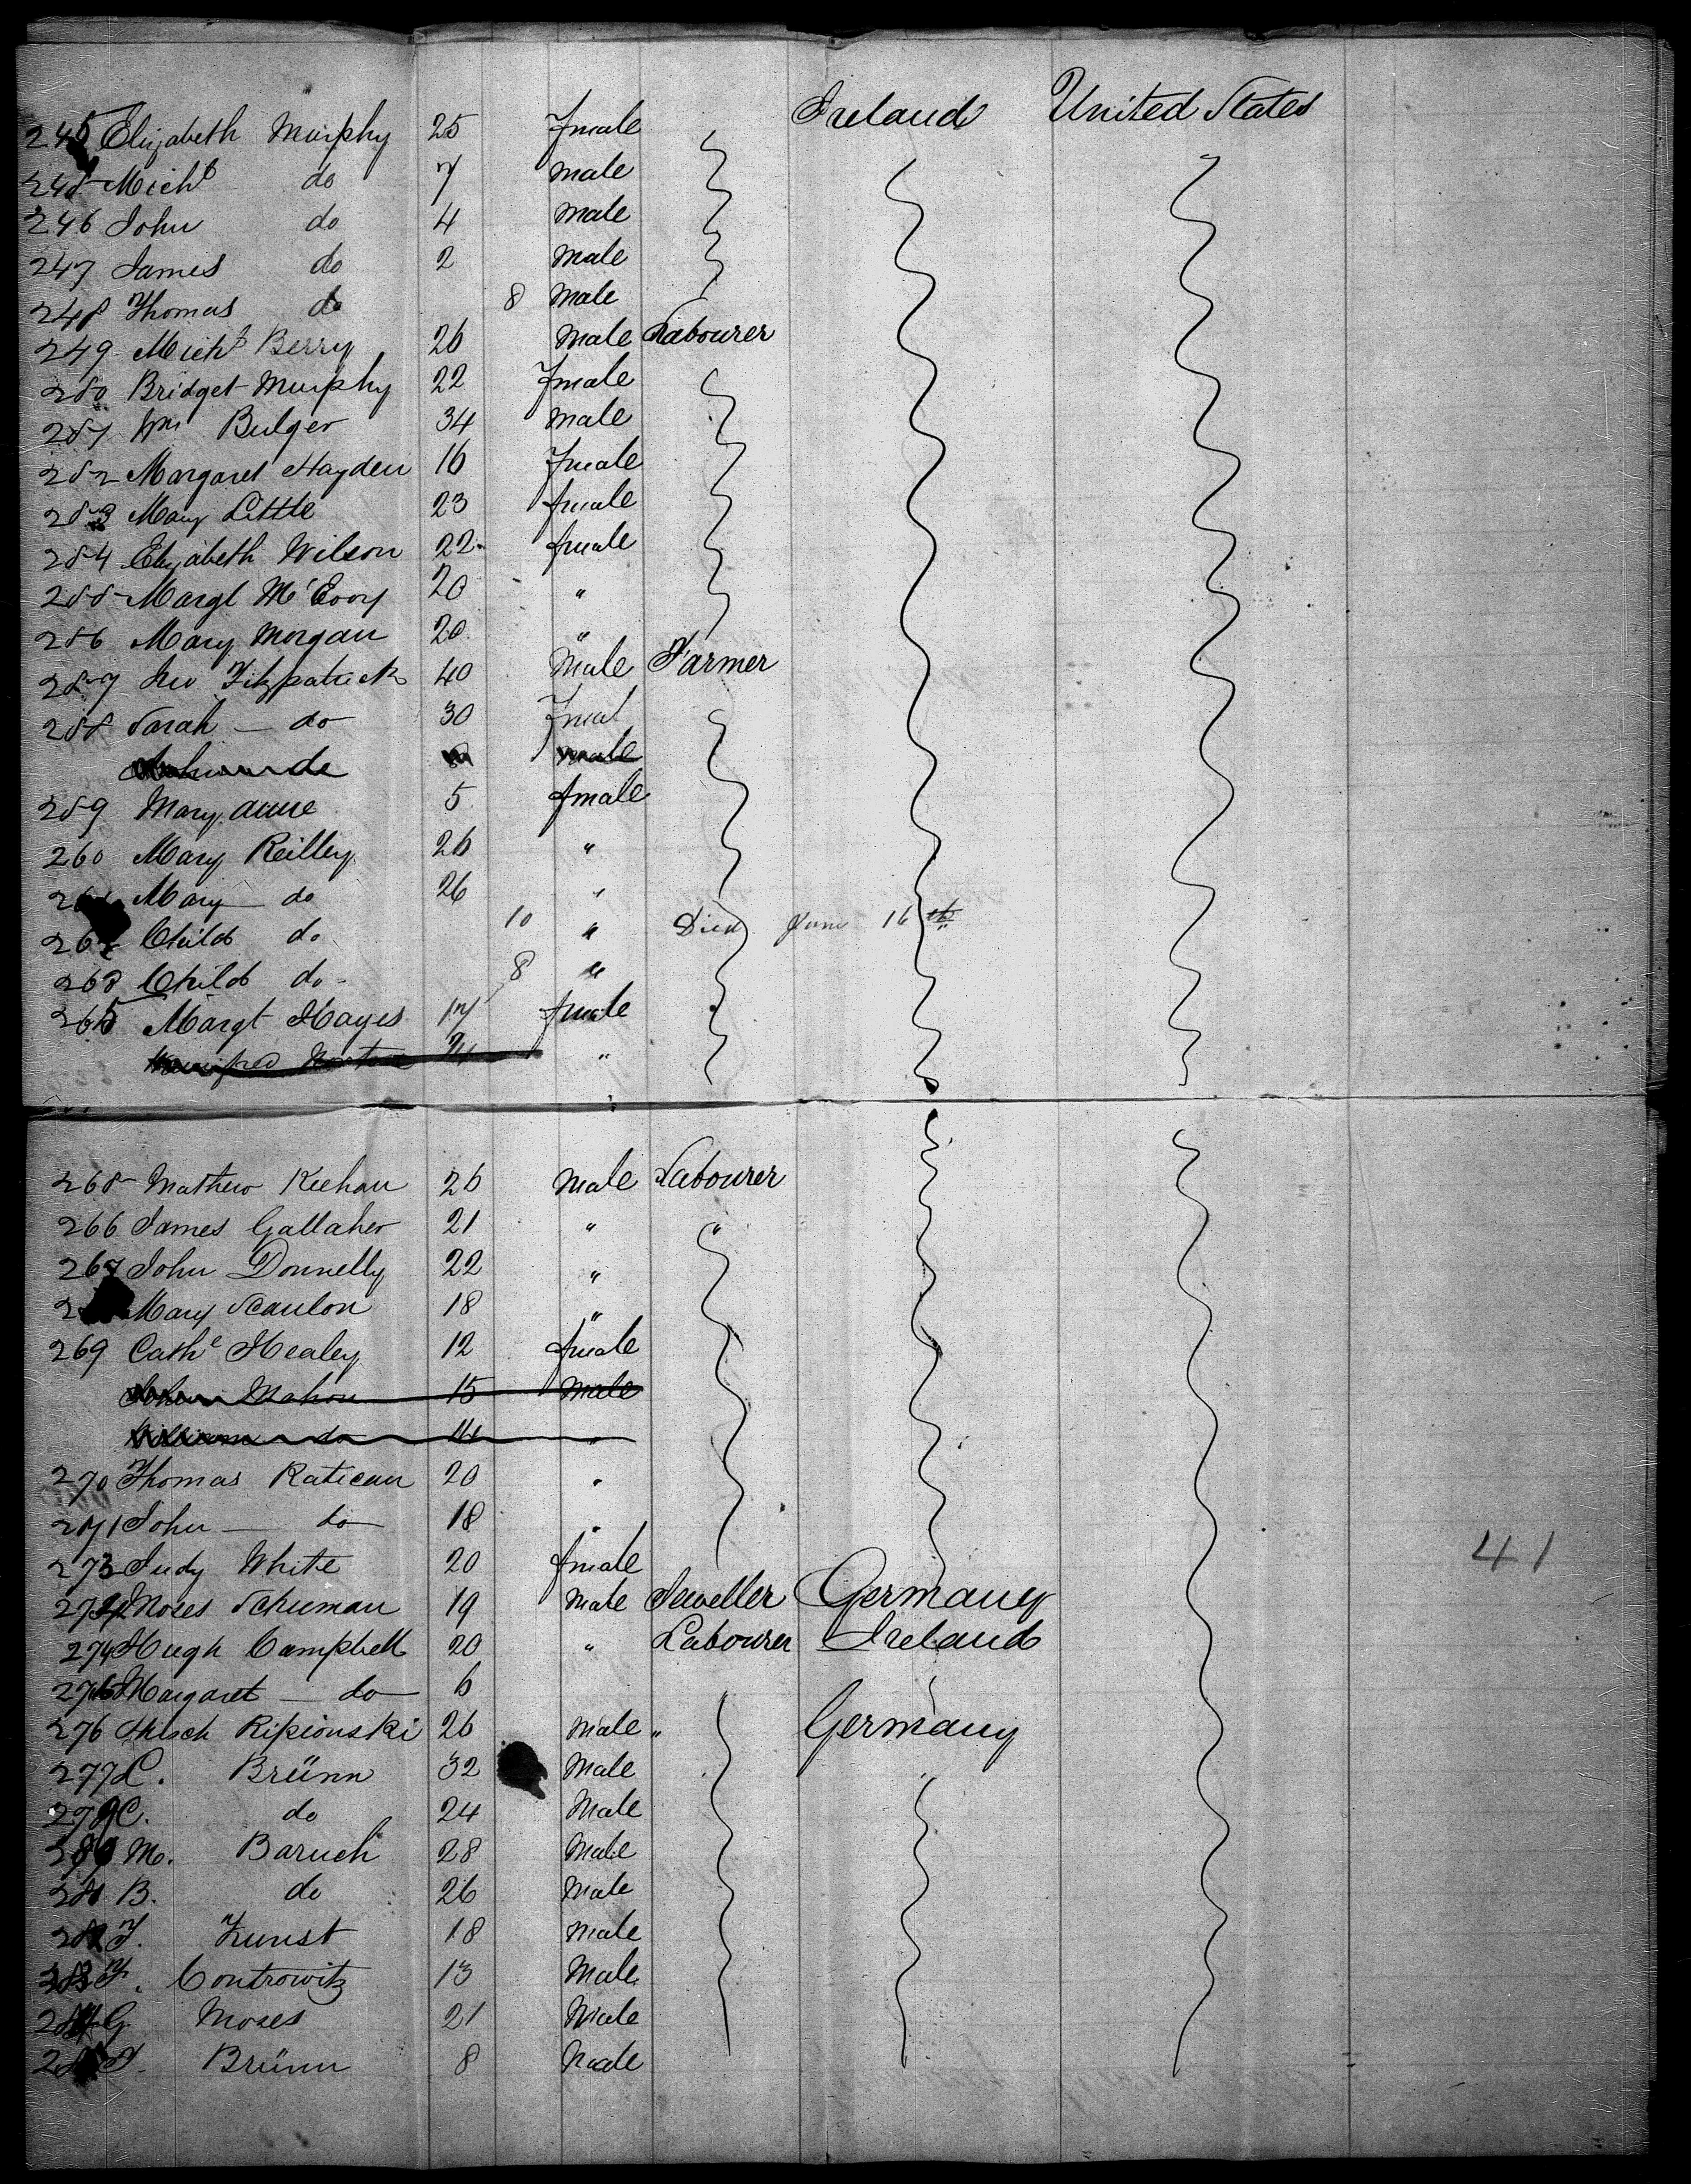 245 Elizabeth Murphy 25 Fmale Ireland United States
245 Michl do 7 male
246 John do 4 male
247 James do 2 male
248 Thomas do 8 male
249 Michl Berry 26 male Labourer
250 Bridget Murphy 22 Fmale
251 Wm Bulger 34 male
252 Margaret Hayden 16 Fmale
253 Mary Little 23 fmale
254 Elizabeth Wilson 22 fmale
255 Margt McEvoy 20 "
256 Mary Morgan 20 "
257 Jno Fitzpatrick 40 Male Farmer
258 Sarah — do 30 Fmal
do male
259 Mary anne 5 fmale
260 Mary Reilley 26 "
Mary do 26 "
262 Child do 10 " Died June 16th
263 Child do 8 "
265 Margt Hayes 17 fmale
"
265 Mathew Keehan 26 male Labourer
266 James Gallaher 21 " "
267 John Donnelly 22 "
Mary Scanlon 18 "
269 Cathe Healey 12 fmale
John Mahon 15 male
William do 14 "
270 Thomas Ratican 20 "
271 John — do 18 "
273 Judy White 20 fmale
Moses Schuman 19 Male Jeweller Germany
41
274 Hugh Campbell 20 " Labourer Ireland
Margaret — do 6
276 Hirsch Ripionski 26 Male " Germany
277 L. Brünn 32 Male
C. do 24 Male
M. Baruch 28 Male
281 B. do 26 Male
Kunst 18 Male
Controwitz 13 Male
G. Moses 21 Male
Brünn 8 Male